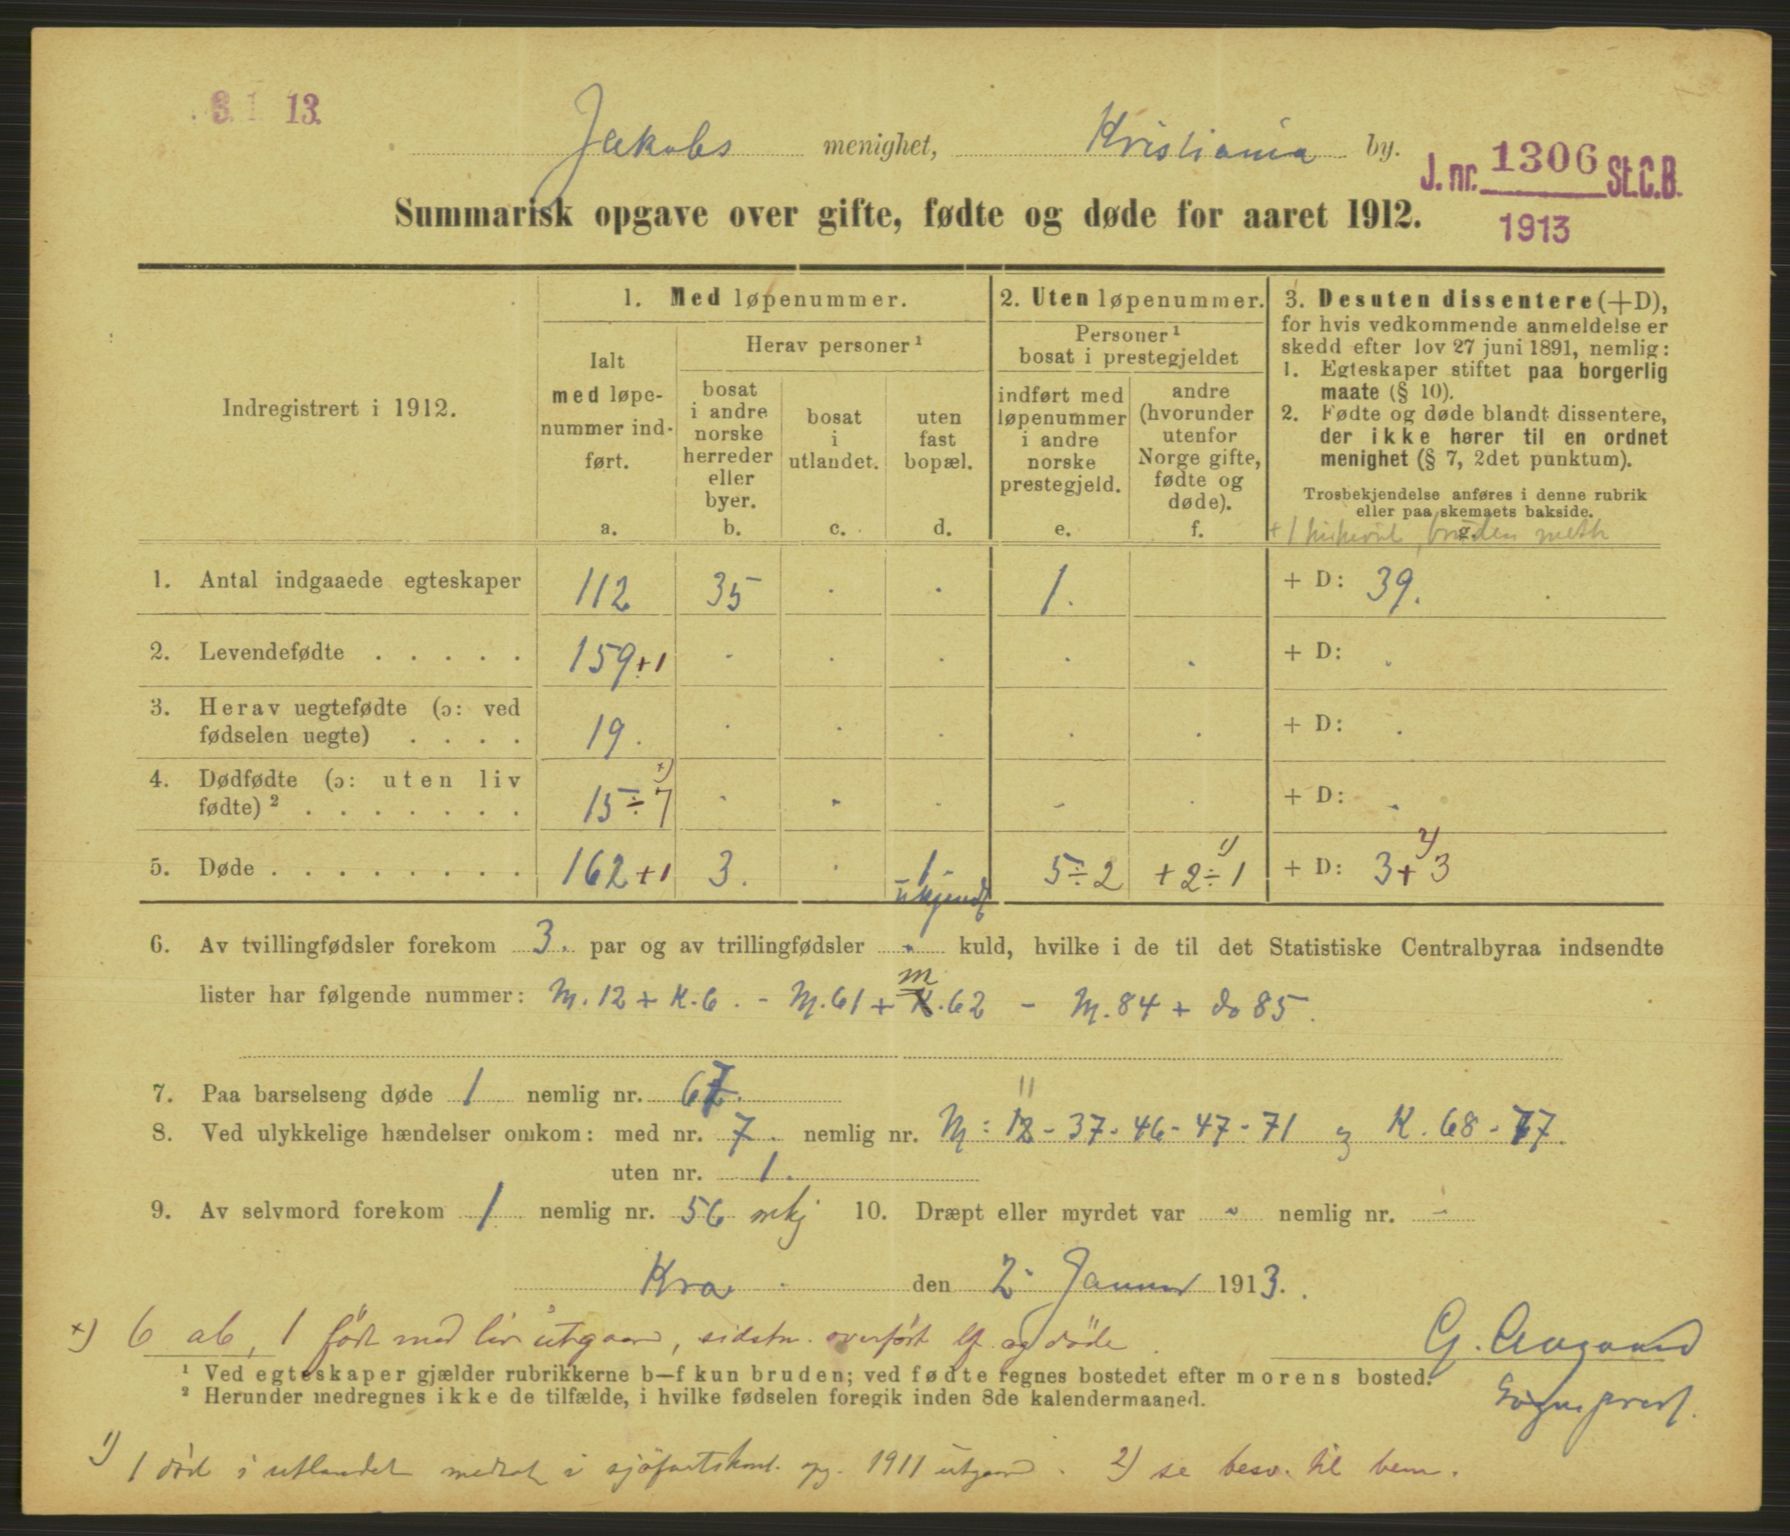 3. 1. 13.
Jakobs menighet, Kristiania by.
J. nr. 1306 St.C.B.
1913
Summarisk opgave over gifte, fødte og døde for aaret 1912.
Indregistrert i 1912.
1. Med løpenummer.
2. Uten løpenummer.
3. Desuten dissentere (+D),
for hvis vedkommende anmeldelse er
skedd efter lov 27 juni 1891, nemlig:
1. Egteskaper stiftet paa borgerlig
maate (§ 10).
2. Fødte og døde blandt dissentere,
der ikke hører til en ordnet
menighet (§ 7, 2det punktum).
Trosbekjendelse anføres i denne rubrik
eller paa skemaets bakside.
g.
Ialt
med løpe-
nummer ind-
ført.
a.
Herav personer ¹
bosat
i andre
norske
herreder
eller
byer.
b.
bosat
i
utlandet.
c.
uten
fast
bopæl.
d.
Personer ¹
bosat i prestegjeldet
indført med
løpenummer
i andre
norske
prestegjeld.
e.
andre
(hvorunder
utenfor
Norge gifte,
fødte og
døde).
f.
+ 1 bruden meth
1. Antal indgaaede egteskaper 112 35 . . 1. + D: 39. .
2. Levendefødte . . . . . 159 + 1 - . . . . + D: .
3. Herav uegtefødte (ɔ: ved
fødselen uegte) . . . . 19. . . . . . + D: .
4. Dødfødte (ɔ: uten liv
fødte) ² . . . . . . . 15 ÷ 7 x) . . . - . + D: .
5. Døde . . . . . . . . 162 + 1 3. . 1 ukjendt 5 ÷ 2 + 2 ÷ 1 1) + D: 3 + 3 2)
6. Av tvillingfødsler forekom 3. par og av trillingfødsler . kuld, hvilke i de til det Statistiske Centralbyraa indsendte
lister har følgende nummer: M. 12 + K. 6. - M. 61 + K. m 62 - M. 84 + do 85.
7. Paa barselseng døde 1 nemlig nr. 67.
8. Ved ulykkelige hændelser omkom: med nr. 7. nemlig nr. M: 12 11 - 37 - 46 - 47 - 71 og K. 68 - 77.
uten nr. 1.
9. Av selvmord forekom 1 nemlig nr. 56 mkj 10. Dræpt eller myrdet var - nemlig nr. -
Kra. den 2. Januar 1913.
x) 6 ab, 1 född med liv utgaar, sidstn. overført lf. og döde.
G. Aagaard
¹ Ved egteskaper gjælder rubrikkerne b—f kun bruden; ved fødte regnes bostedet efter morens bosted.
² Herunder medregnes ikke de tilfælde, i hvilke fødselen foregik inden 8de kalendermaaned.
Sogneprest.
1) 1 död i utlandet medtat i sjöfartskont. opg. 1911 utgaar. 2) se besv. til bem.